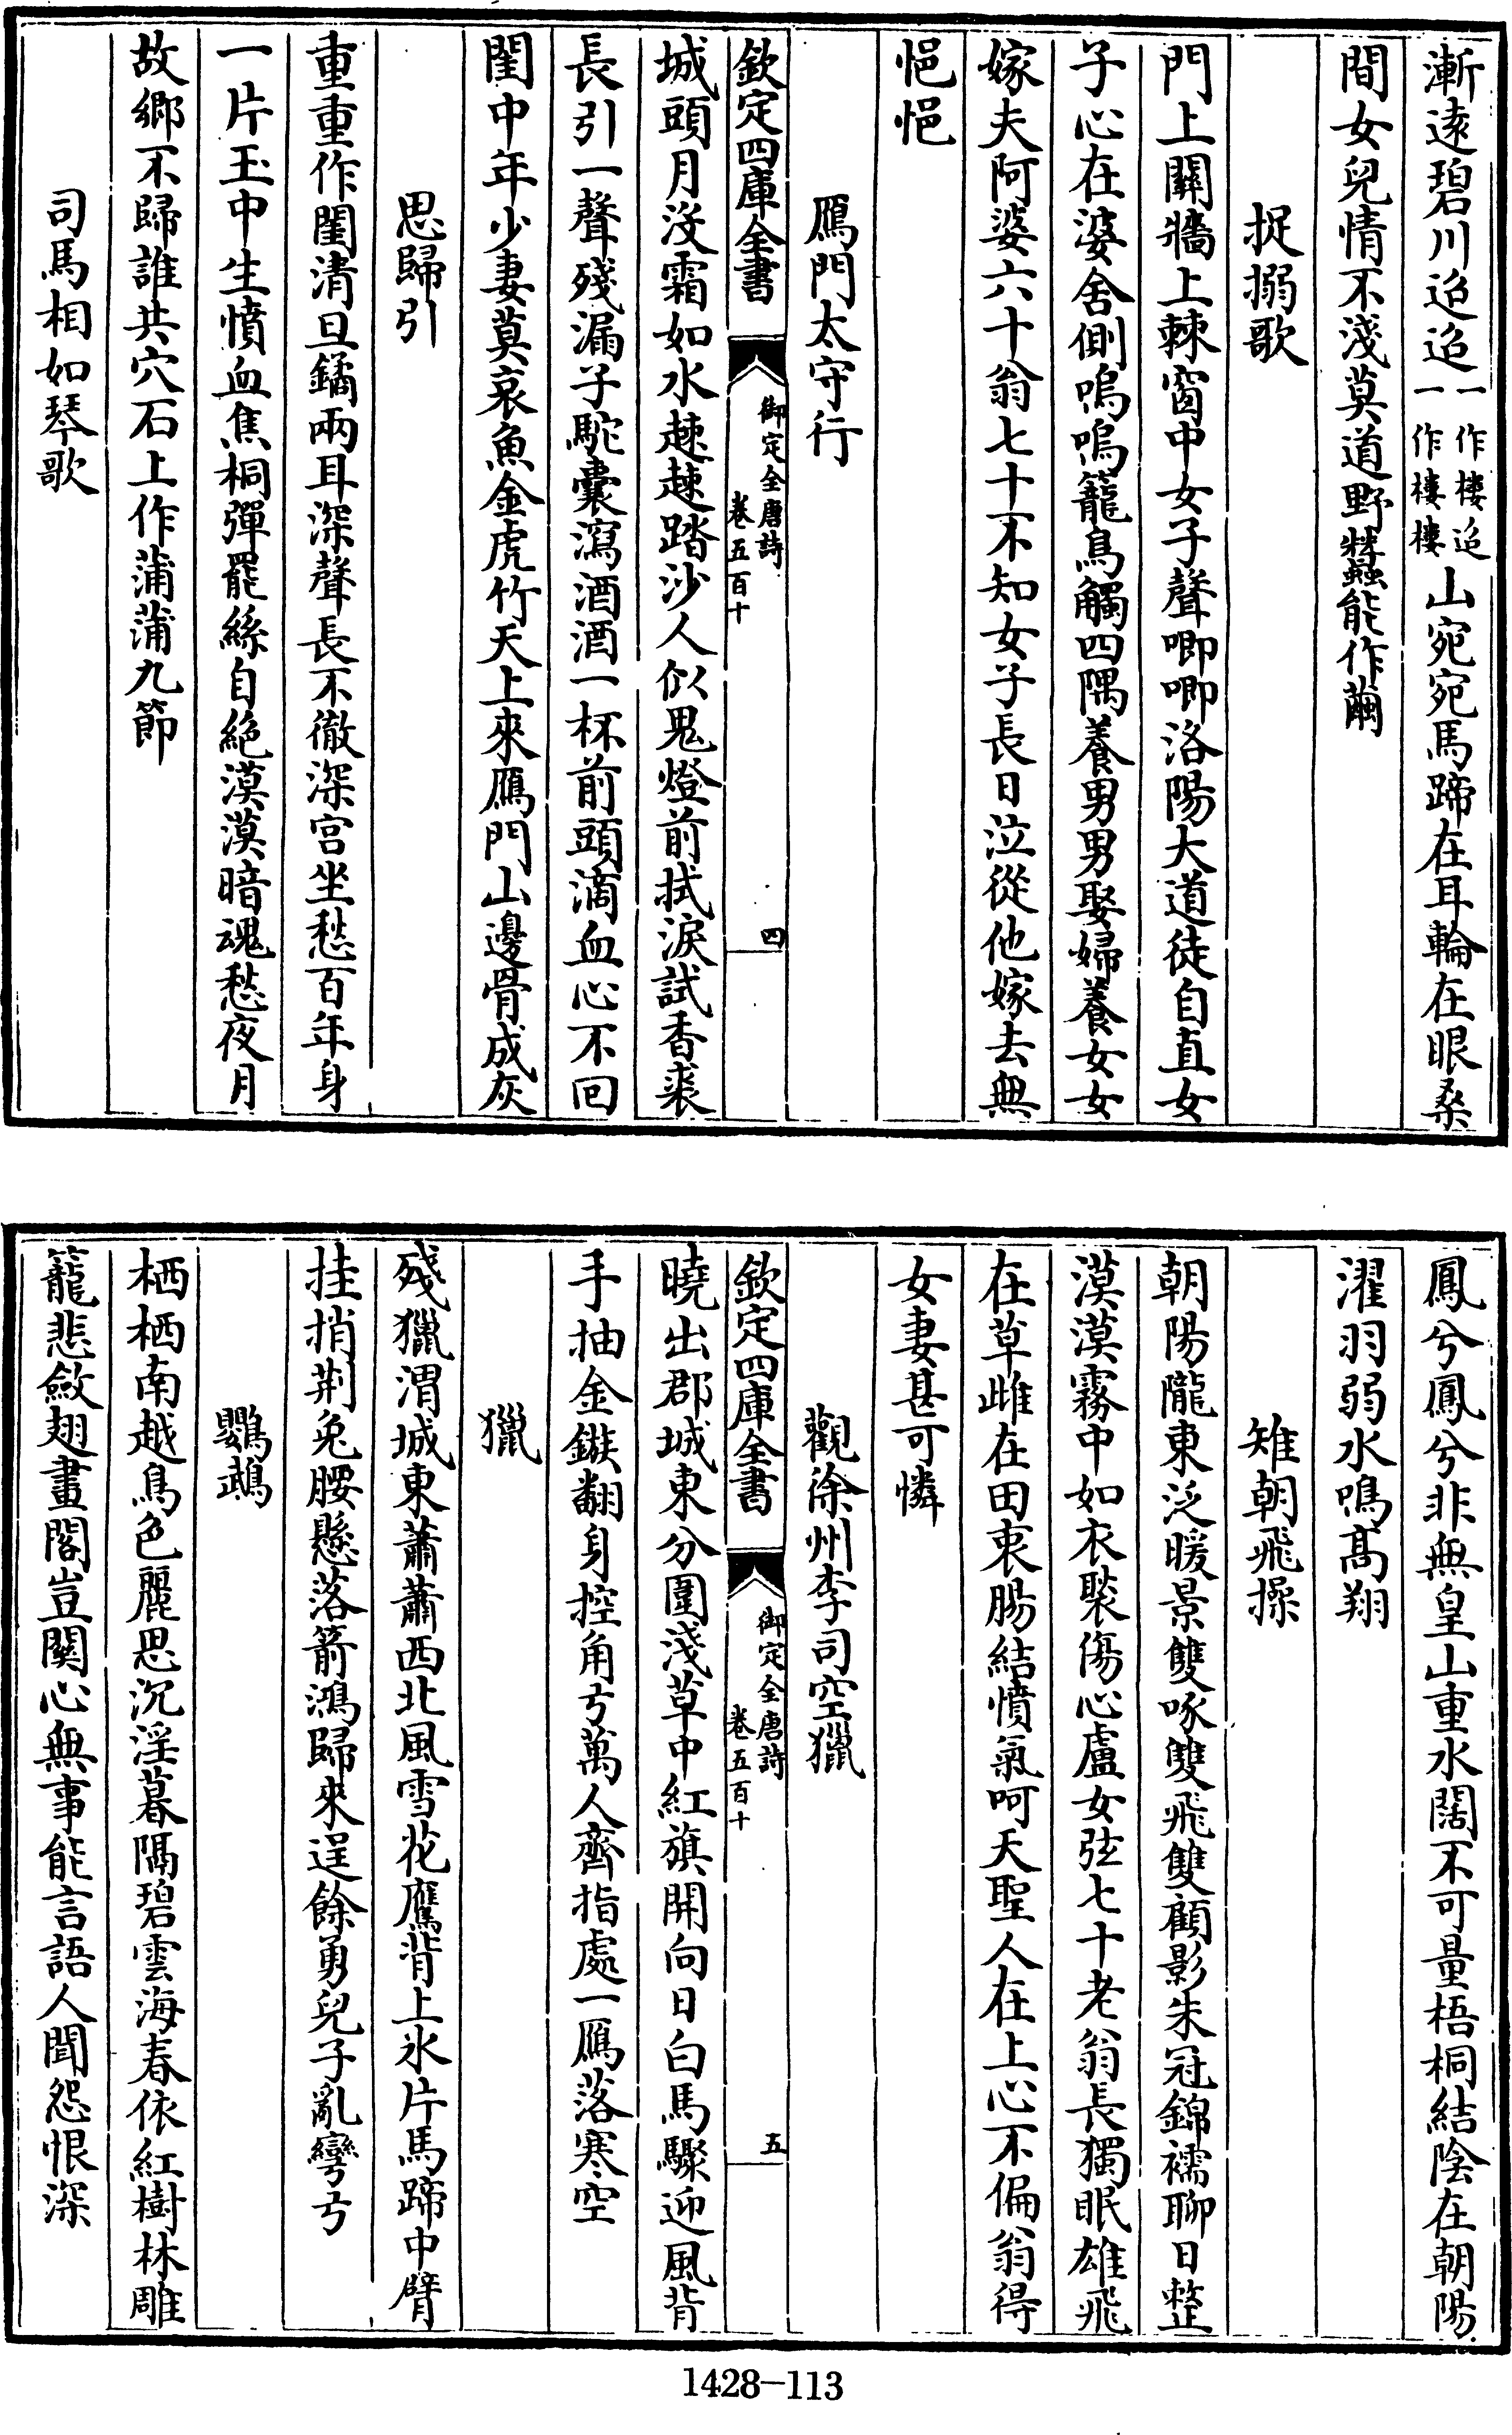 漸遠碧川迢迢一作樓迢一作樓樓山宛宛馬蹄在耳輪在眼桑
間女兒情不淺莫道野蠶能作繭
捉搦歌
門上關牆上棘窗中女子聲唧唧洛陽大道徒自直女
子心在婆舍側嗚嗚籠鳥觸四隅養男男娶婦養女女
嫁夫阿婆六十翁七十不知女子長日泣從他嫁去無
悒悒
鴈門太守行
欽定四庫全書
御定全唐詩
卷五百十
四
城頭月沒霜如水趚趚踏沙人似鬼燈前拭淚試香裘
長引一聲殘漏子駝囊瀉酒酒一杯前頭滴血心不回
閨中年少妻莫哀魚金虎竹天上來鴈門山邊骨成灰
思歸引
重重作閨清旦鐍兩耳深聲長不徹深宮坐愁百年身
一片玉中生憤血焦桐彈罷絲自絕漠漠暗魂愁夜月
故鄉不歸誰共穴石上作蒲蒲九節
司馬相如琴歌
鳳兮鳳兮非無皇山重水闊不可量梧桐結陰在朝陽
濯羽弱水鳴高翔
雉朝飛操
朝陽隴東泛暖景雙啄雙飛雙顧影朱冠錦襦聊日整
漠漠霧中如衣褧傷心盧女弦七十老翁長獨眠雄飛
在草雌在田衷腸結憤氣呵天聖人在上心不偏翁得
女妻甚可憐
觀徐州李司空獵
欽定四庫全書
御定全唐詩
卷五百十
五
曉出郡城東分圍淺草中紅旗開向日白馬驟迎風背
手抽金鏃翻身控角弓萬人齊指處一鴈落寒空
獵
殘獵渭城東蕭蕭西北風雪花鷹背上氷片馬蹄中臂
挂捎荆兔腰懸落箭鴻歸來逞餘勇兒子亂彎弓
鸚鵡
栖栖南越鳥色麗思沉淫暮隔碧雲海春依紅樹林雕
籠悲斂翅畫閣豈關心無事能言語人聞怨恨深
1428-113